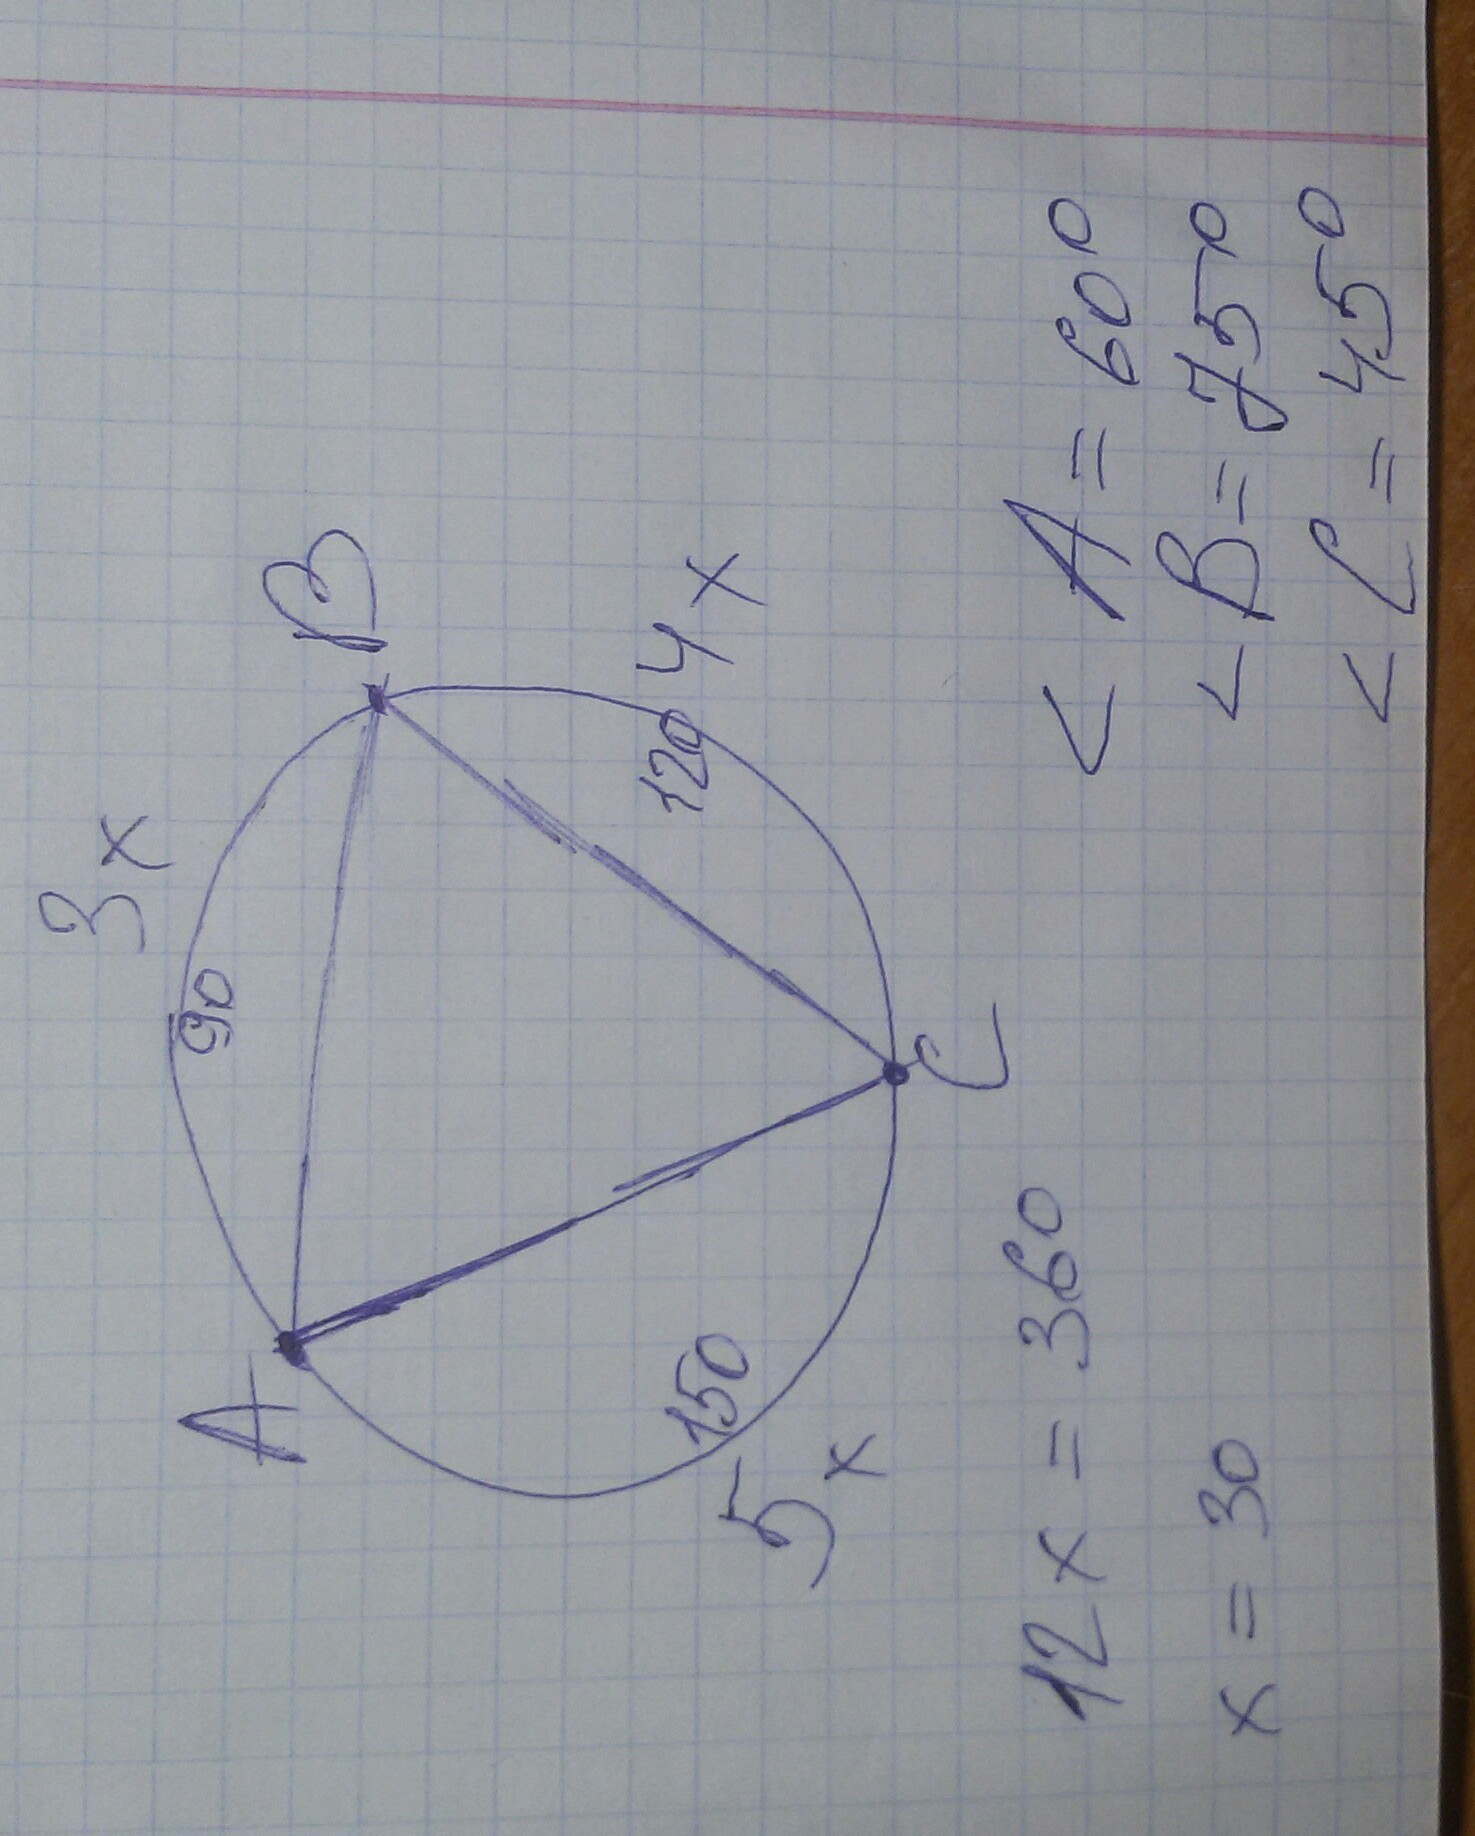 3x
A
90
B
5x
150
120
4x
C
12x = 360
x = 30
< A = 60°
< B = 75°
< C = 45°